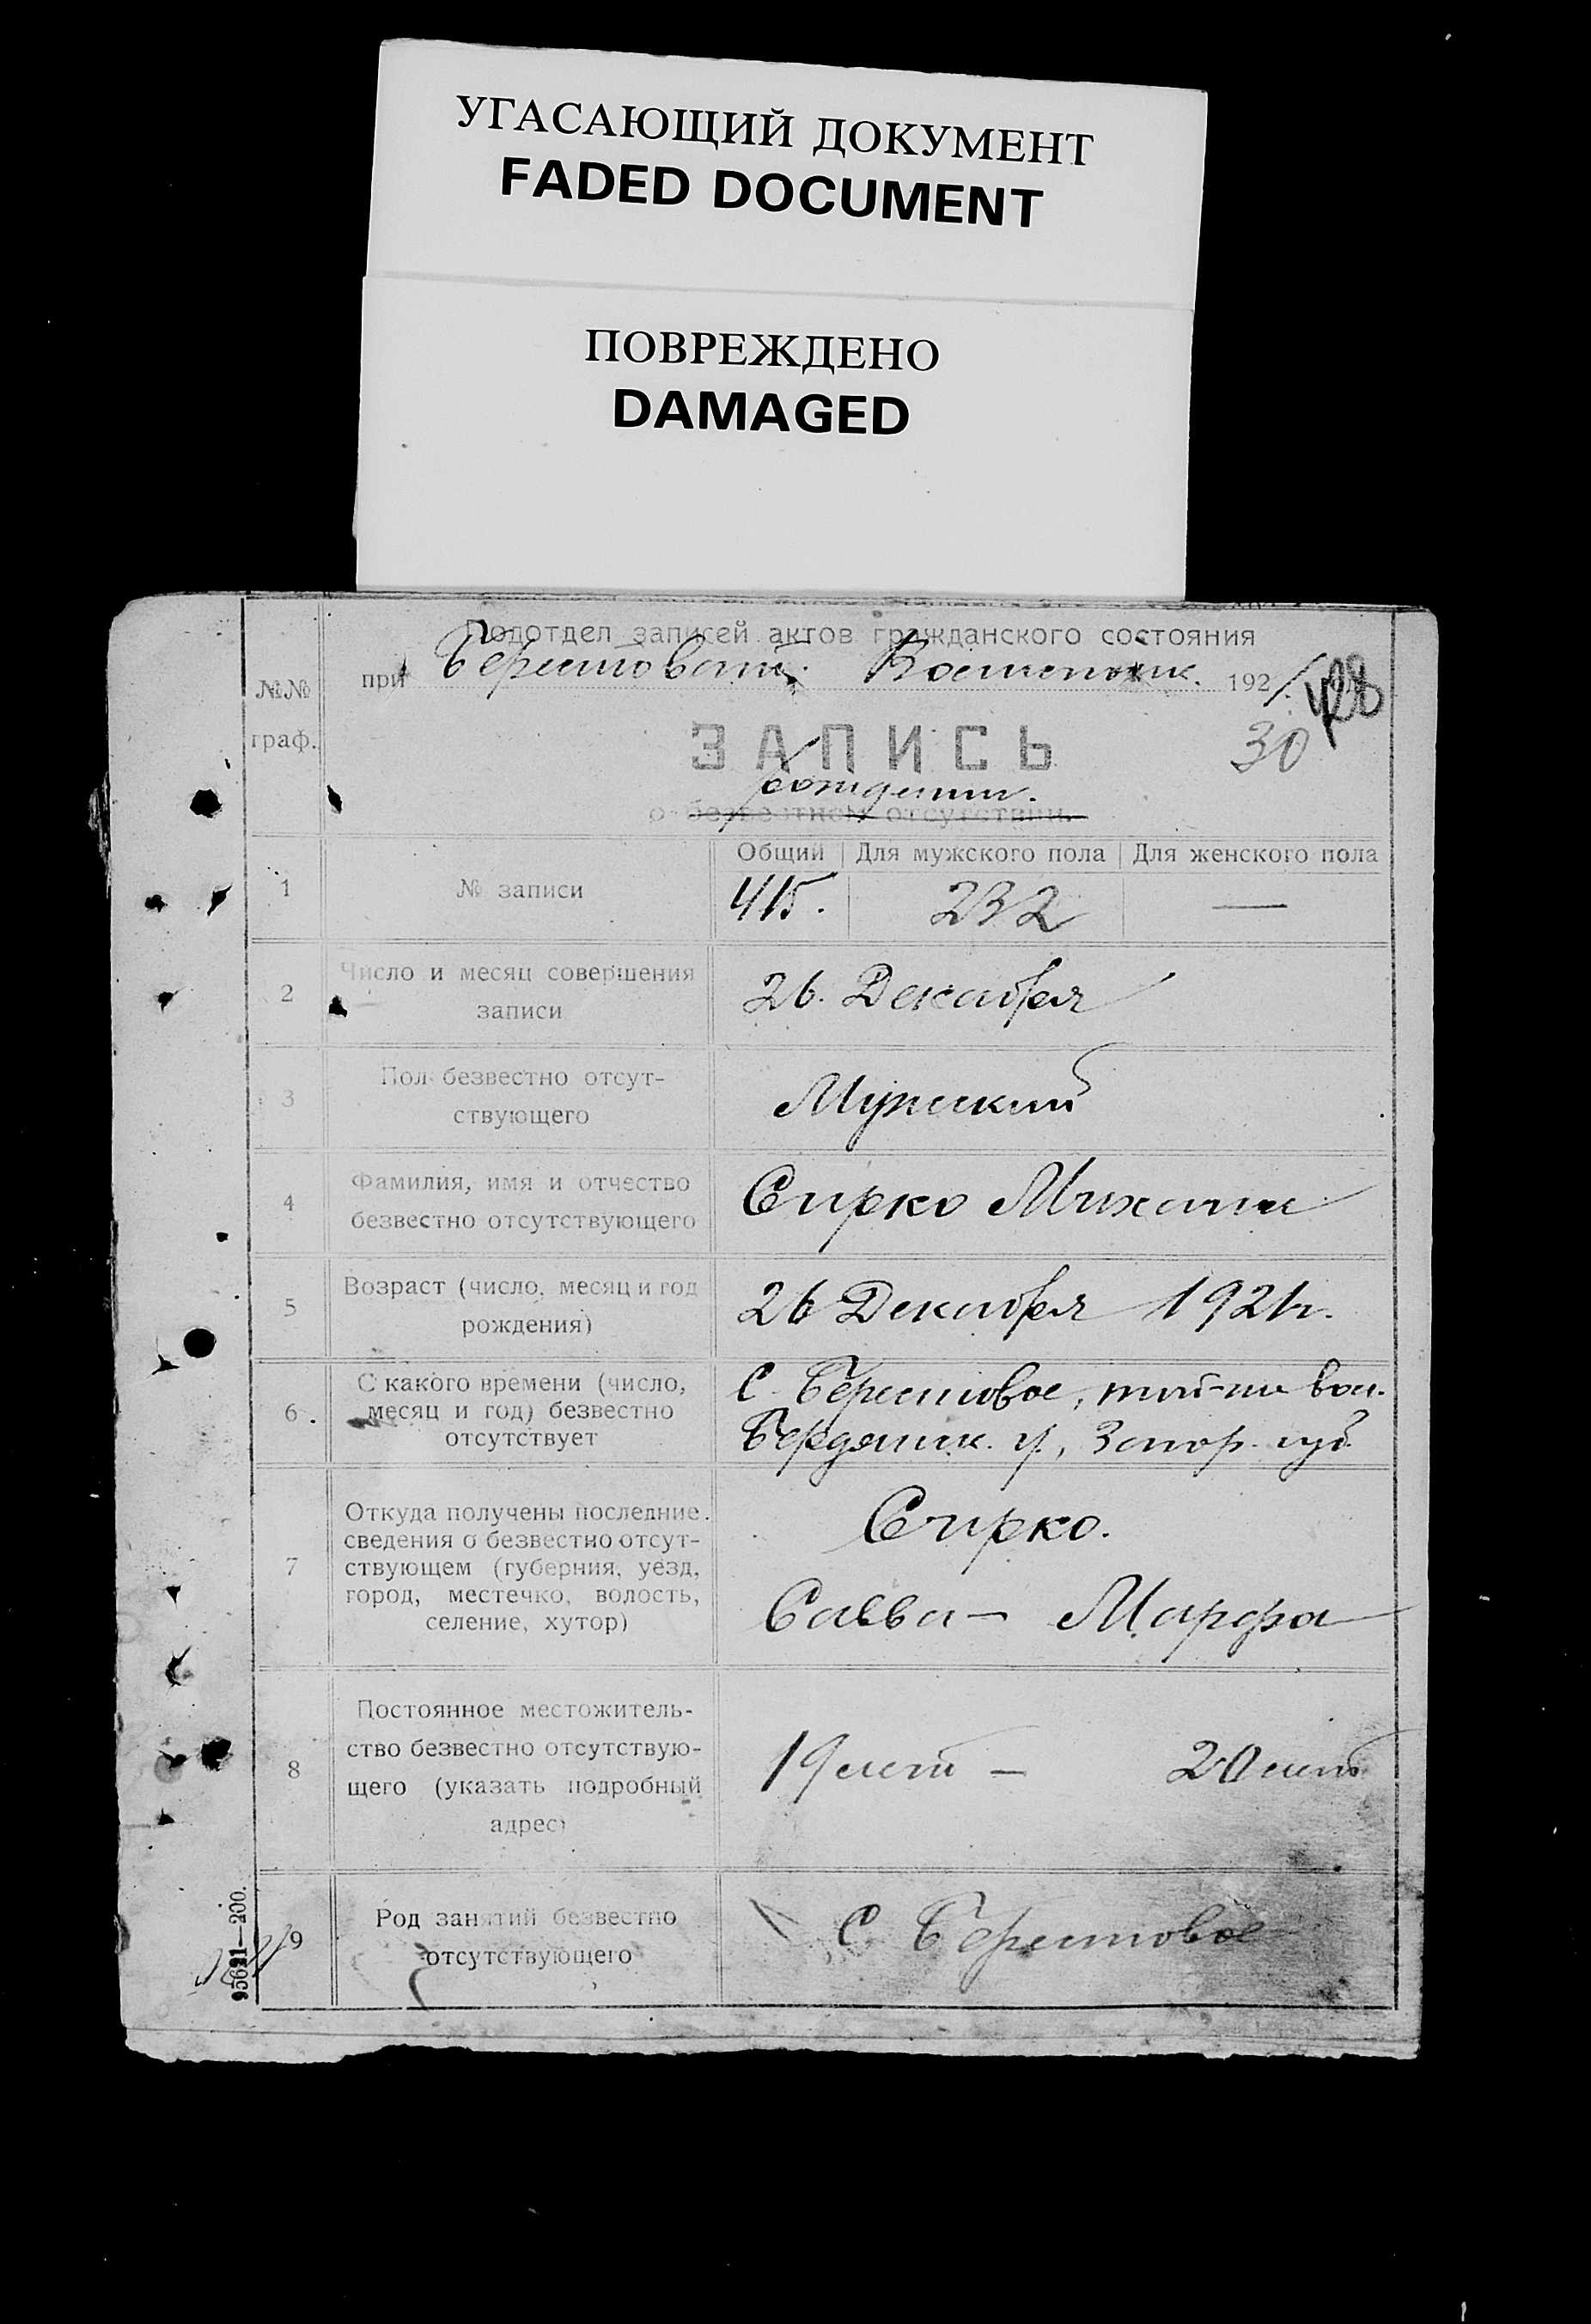 УГАСАЮЩИЙ ДОКУМЕНТ
FADED DOCUMENT
ПОВРЕЖДЕНО
DAMAGED
Подотдел записей актов гражданского состояния
№№ граф.
при Берестоват. Волисполк. 1921
428
30
ЗАПИСЬ
рождении.
о безвестном отсутствии.
Общий Для мужского пола Для женского пола
1 № записи 415. 232 —
2 Число и месяц совершения записи 26. Декабря
3 Пол безвестно отсут-
ствующего Мужский
4 Фамилия, имя и отчество
безвестно отсутствующего Сирко Михаил
5 Возраст (число, месяц и год
рождения) 26 Декабря 1921 г.
6. С какого времени (число,
месяц и год) безвестно
отсутствует
С. Берестовое, той-же вол.
Бердянск. у., Запор. губ.
7 Откуда получены последние
сведения о безвестно отсут-
ствующем (губерния, уезд,
город, местечко, волость,
селение, хутор)
Сирко.
Савва — Марфа
8 Постоянное местожитель-
ство безвестно отсутствую-
щего (указать подробный
адрес)
19 лет — 20 лет
9 Род занятий безвестно
отсутствующего
С. Берестовое
95621—200.